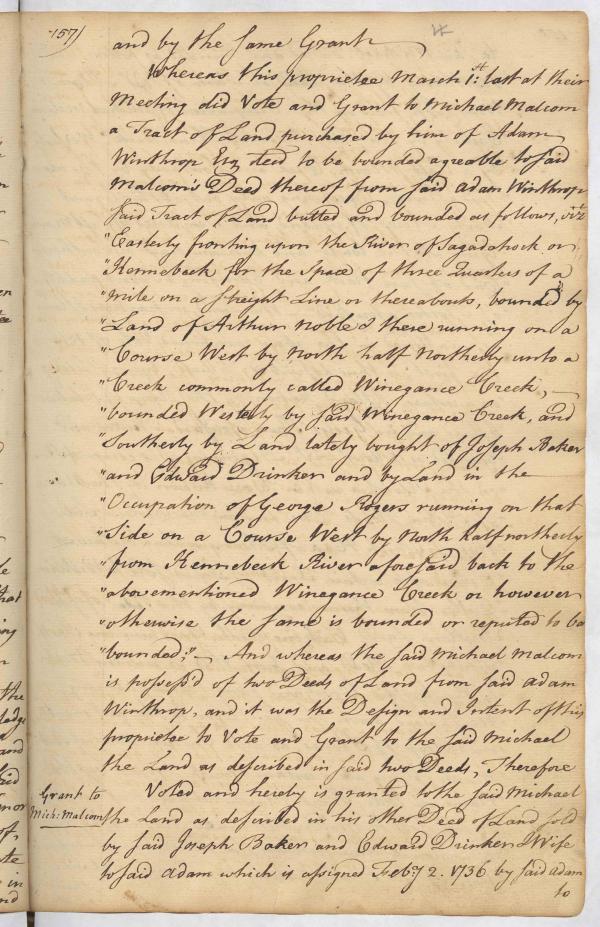 157)
and by the same Grant
Whereas this proprietee March 1st: last at their
Meeting did Vote and Grant to Michael Malcom
a Tract of Land purchased by him of Adam
Winthrop Esq deed to be bounded agreable to said
Malcom's Deed thereof from said Adam Winthrop
said Tract of Land butted and bounded as follows, vizt
"Easterly fronting upon the River of Sagadahock or
"Kennebeck for the Space of three Quarters of a
"mile on a streight Line or thereabouts, bounded by
"Land of Arthur Noble & there running on a
"Course West by North half Northerly unto a
"Creek commonly called Winegance Creek,
"bounded Westerly by said Winegance Creek, and
"Southerly by Land lately bought of Joseph Baker
"and Edward Drinker and by Land in the
"Occupation of George Rogers running on that
"Side on a Course West by North half northerly
"from Kennebeck River aforesaid back to the
"abovementioned Winegance Creek or however
"otherwise the same is bounded or reputed to be
"bounded;" And whereas the said Michael Malcom
is possess'd of two Deeds of Land from said Adam
Winthrop, and it was the Design and Intent of this
proprietee to Vote and Grant to the said Michael
the Land as described in said two Deeds, Therefore
Grant to
Mich: Malcom
Voted and hereby is granted to the said Michael
the Land as described in his other Deed of Land sold
by said Joseph Baker and Edward Drinker & Wife
to said Adam which is assigned Feb:y 2. 1736 by said Adam
to